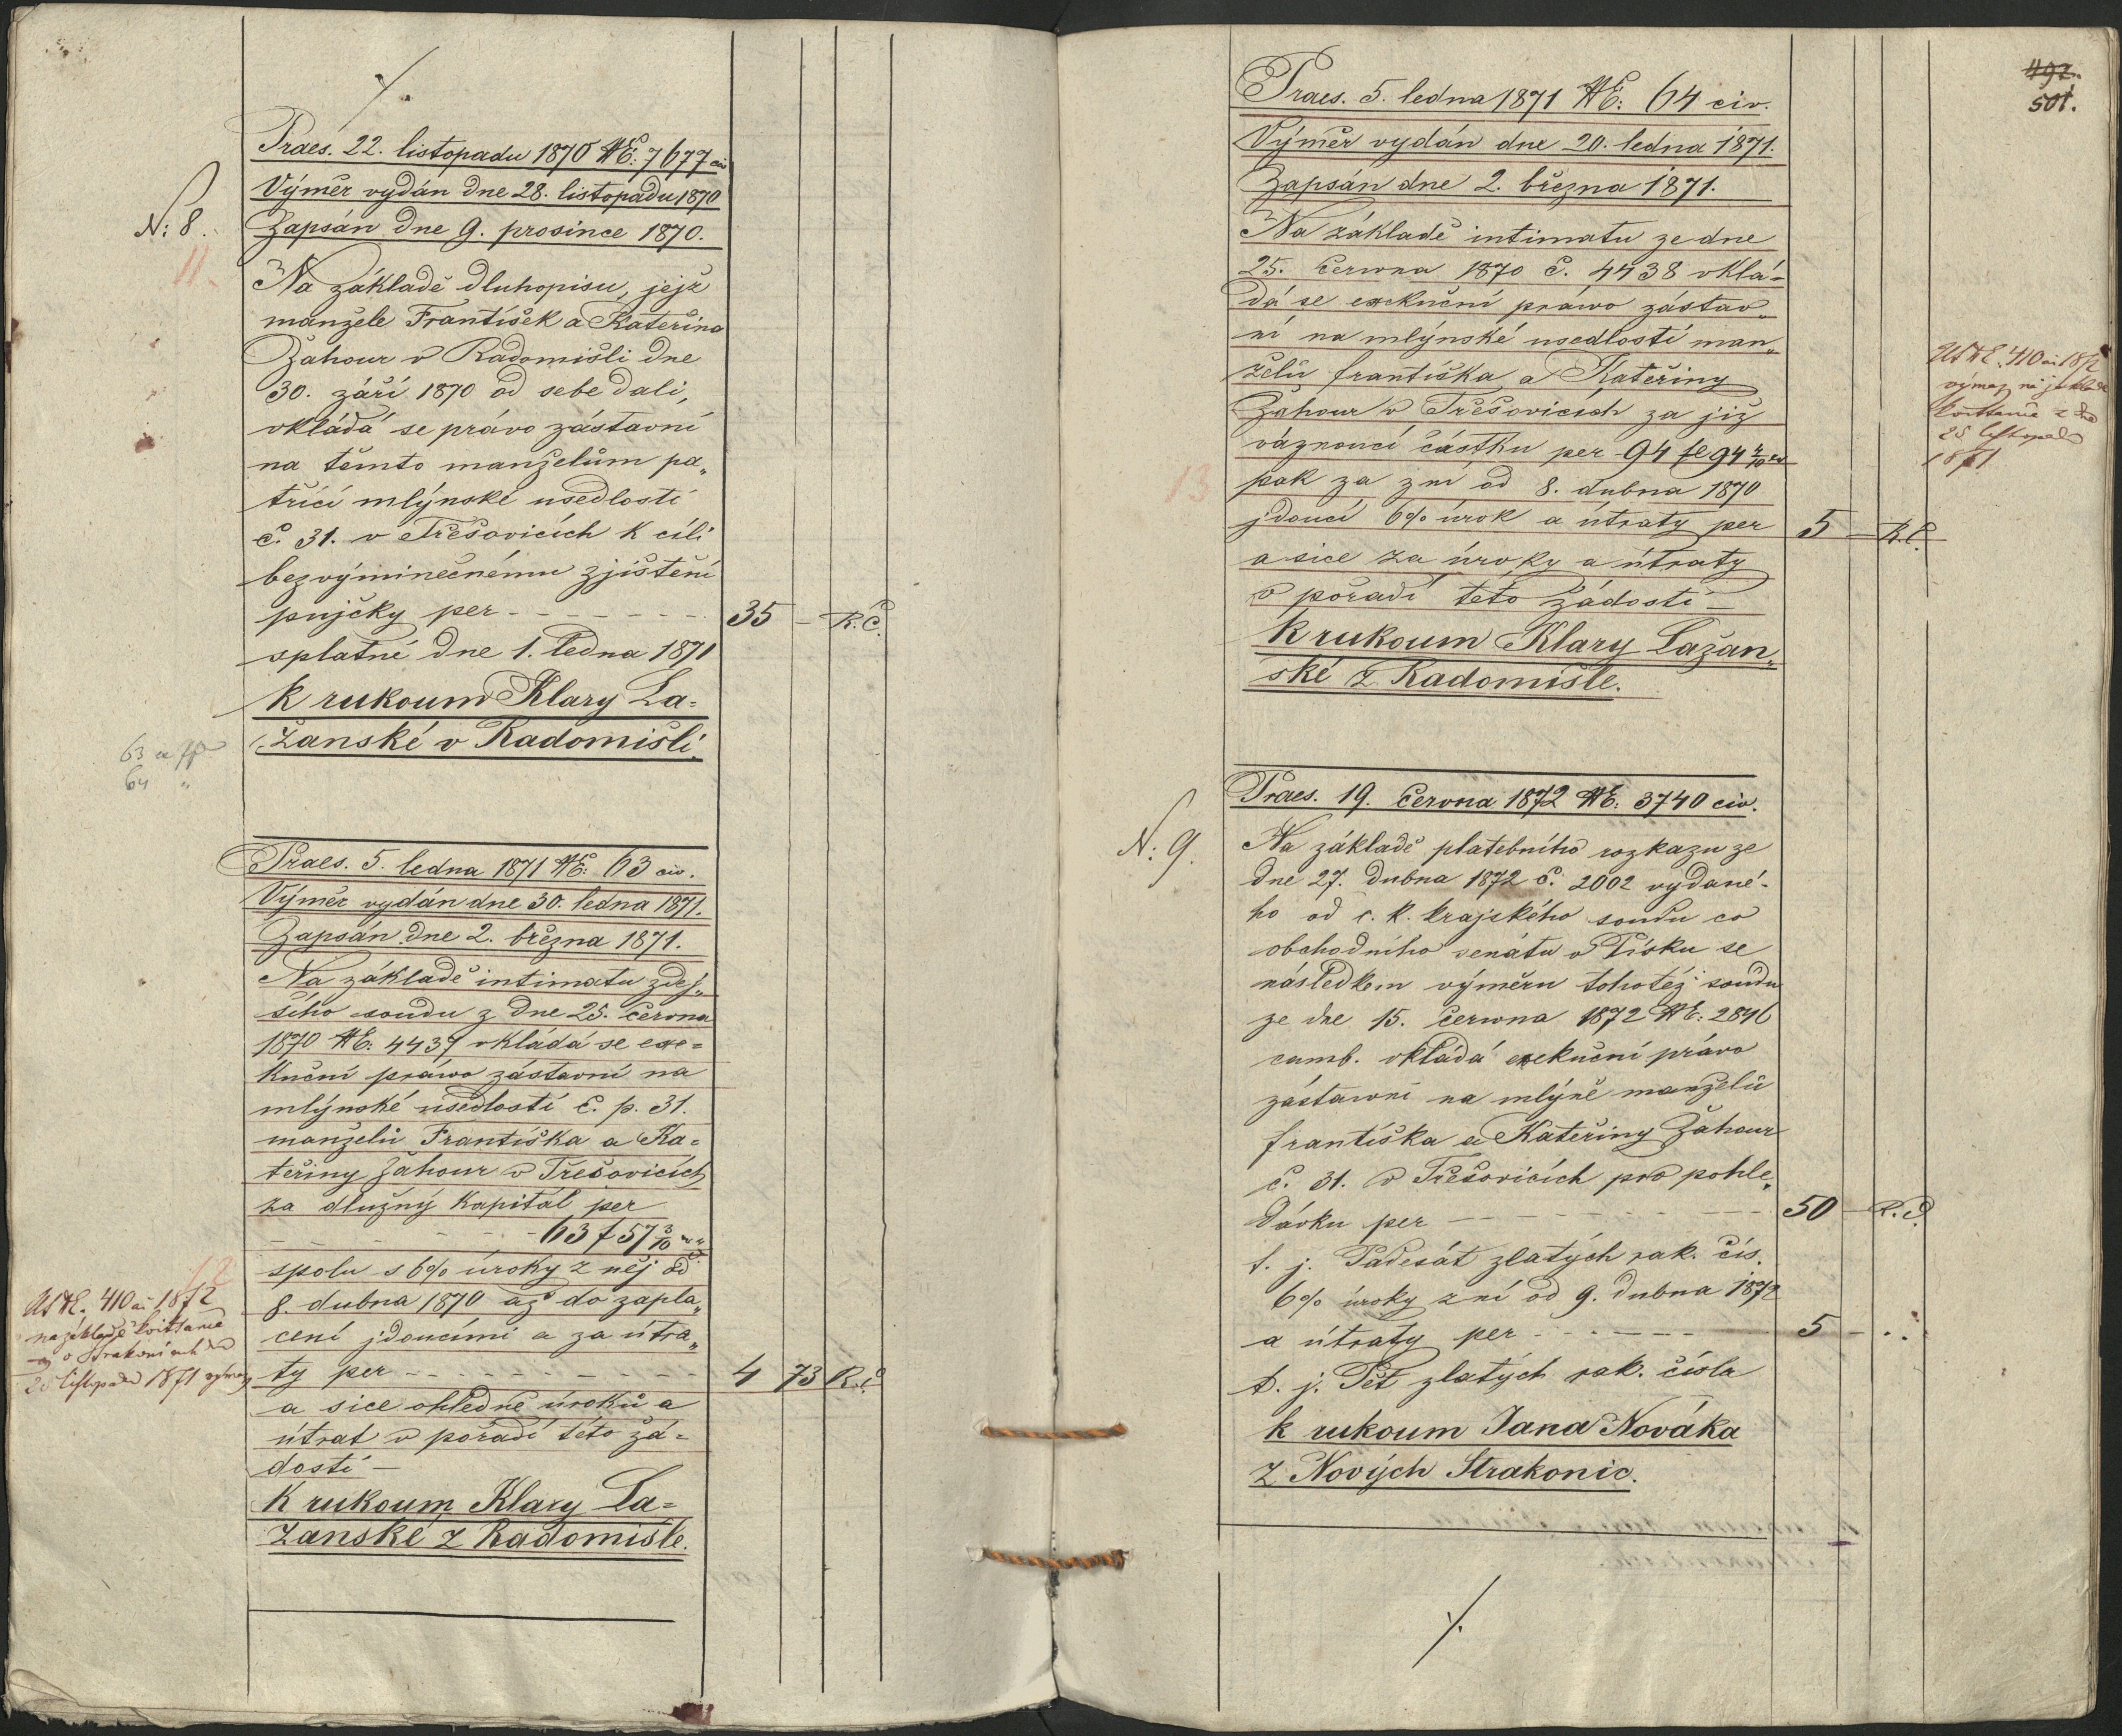 Praes. 22. listopadu 1870 NE: 7677 civ
Výměr vydán dne 28. listopadu 1870
N: 8.
Zapsán dne 9. prosince 1870.
11.
Na základě dluhopisu, jejž
manžele František a Kateřina
Žahour v Radomišli dne
30. září 1870 od sebe dali,
vkládá se právo zástavní
na těmto manželům pa„
třící mlýnské usedlosti
č. 31. v Třešovicích k cíli
bezvýminečnému zjištění
pujčky per - - - - - - 35 — R. Č.
splatné dne 1. ledna 1871
k rukoum Klary La=
žanské v Radomišli.
63 a
64 "
Praes. 5. ledna 1871 NE: 63 civ.
Výměr vydán dne 30. ledna 1871.
Zapsán dne 2. března 1871.
Na základě intimatu zdej„
šího soudu z dne 25. června
1870 NE: 4437 vkládá se exe=
kuční právo zástavní na
mlýnské usedlosti č. p. 31.
manželů Františka a Ka=
teřiny Žahour v Třešovicích
za dlužný kapitál per
- - - - - - 63 f 57 3/10
12
spolu s 6% úroky z něj od
8. dubna 1870 až do zapla„
cení jdoucími a za útra„
ty per - - - - - - - - 4 73 R. č
410 1872
na základě kvittance
v Strakonicích
25 listopadu 1871 výmaz
a sice ohledně úroků a
útrat v pořadí této žá=
dosti —
K rukoum Klary La=
žanské z Radomišle.
492.
501.
Praes. 5. ledna 1871 NE: 64 civ.
Výměr vydán dne 20. ledna 1871.
Zapsán dne 2. března 1871.
Na základě intimatu ze dne
25. června 1870 č. 4438 vklá=
dá se exekuční právo zástav„
ní na mlýnské usedlosti man„
želů františka a Kateřiny
Žahour v Třešovicích za již
váznoucí částku per 94 fl 94 /10
13
pak za z ní od 8. dubna 1870
jdoucí 6% úrok a útraty per 5 — R. č.
a sice za úroky a útraty
v pořadí této žádosti —
K rukoum Klary Lažan„
ské z Radomišle.
410 1872
výmaz na základě
kvittance z dne
25 listopadu
1871
Praes. 19. června 1872 NE: 3740 civ.
N: 9.
Na základě platebního rozkazu ze
dne 27. dubna 1872 č. 2002 vydané-
ho od c. k. krajského soudu co
obchodního senátu v Písku se
následkem výměru tohotéž soudu
ze dne 15. června 1872 NE: 2846
camb. vkládá exekuční právo
zástavní na mlýně manželů
františka a Kateřiny Žahour
č. 31. v Třešovicích pro pohle„
dávku per - - - - - - - 50 — R. č.
t. j. Padesát zlatých rak. čís.
6% úroky z ní od 9. dubna 1872
a útraty per - - - - - - 5 — . .
t. j. Pět zlatých rak. čísla
k rukoum Jana Nováka
z Nových Strakonic.